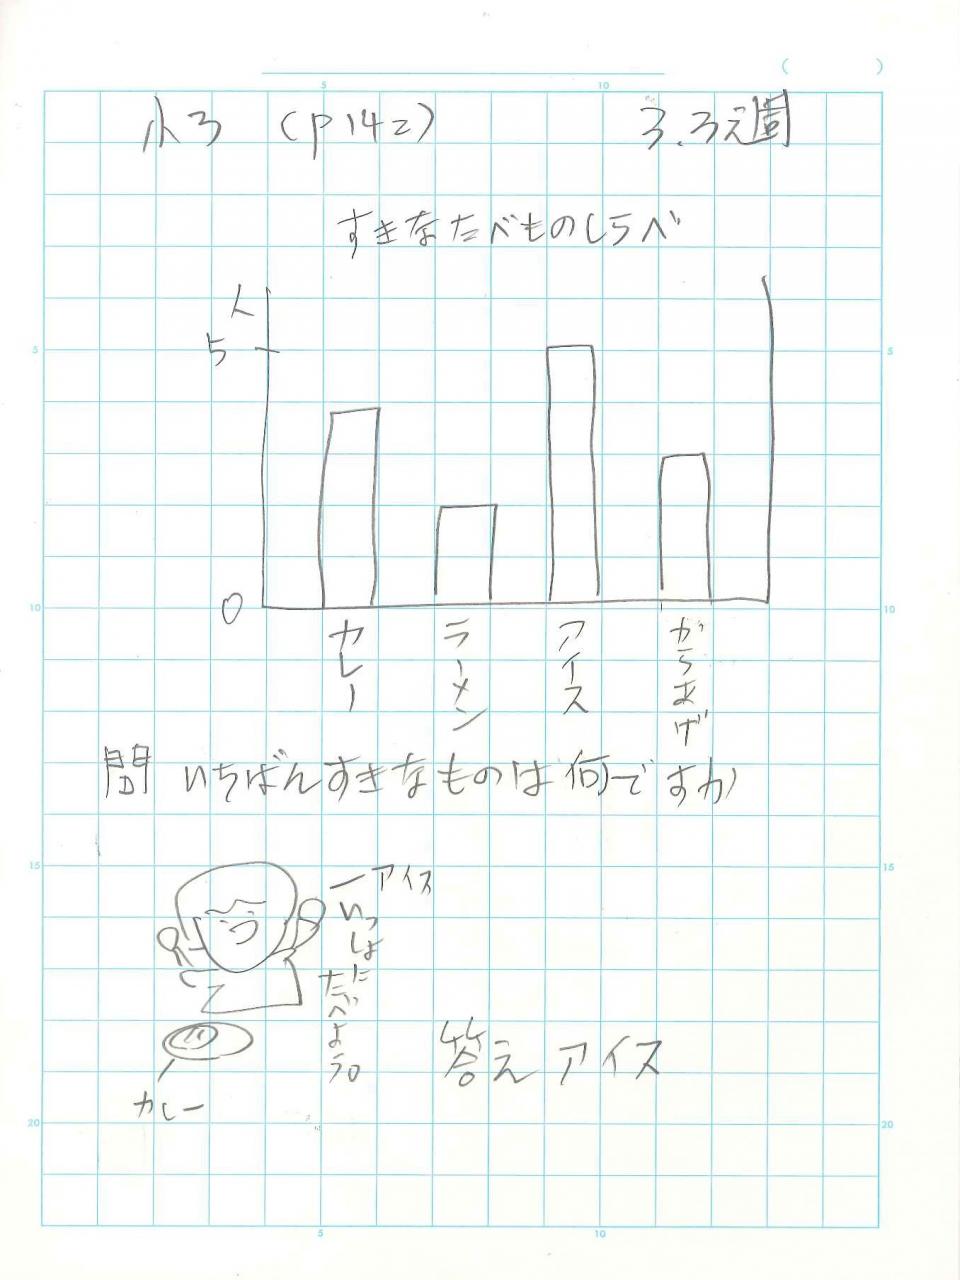 小3 (P142)
すきなたべものしらべ
人
5
0
カレー
ラーメン
アイス
からあげ
問 いちばんすきなものは何ですか
アイス
いっしょに
たべよう。
カレー
答え アイス
5
10
5
10
15
20
5
10
15
20
5
10